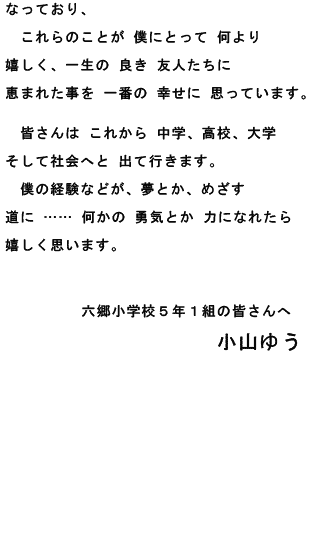 なっており、
これらのことが 僕にとって 何より
嬉しく、一生の 良き 友人たちに
恵まれた事を 一番の 幸せに 思っています。
皆さんは これから 中学、高校、大学
そして社会へと 出て行きます。
僕の経験などが、夢とか、めざす
道に …… 何かの 勇気とか 力になれたら
嬉しく思います。
六郷小学校５年１組の皆さんへ
小山ゆう